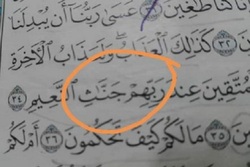 كُنَّا طَٰغِينَ ٣١ عَسَىٰ رَبُّنَآ أَن يُبۡدِلَنَا
٣٢ كَذَٰلِكَ ٱلۡعَذَابُۖ وَلَعَذَابُ ٱلۡأٓخِرَةِ
مُتَّقِينَ عِندَ رَبِّهِمۡ جَنَّٰتِ ٱلنَّعِيمِ ٣٤
٣٥ مَا لَكُمۡ كَيۡفَ تَحۡكُمُونَ ٣٦ أَمۡ لَكُمۡ